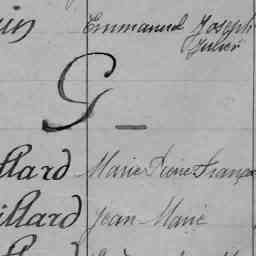 Emmanuel Joseph
Julien
G —
llard Marie Pierre Franço
illard Jean Marie